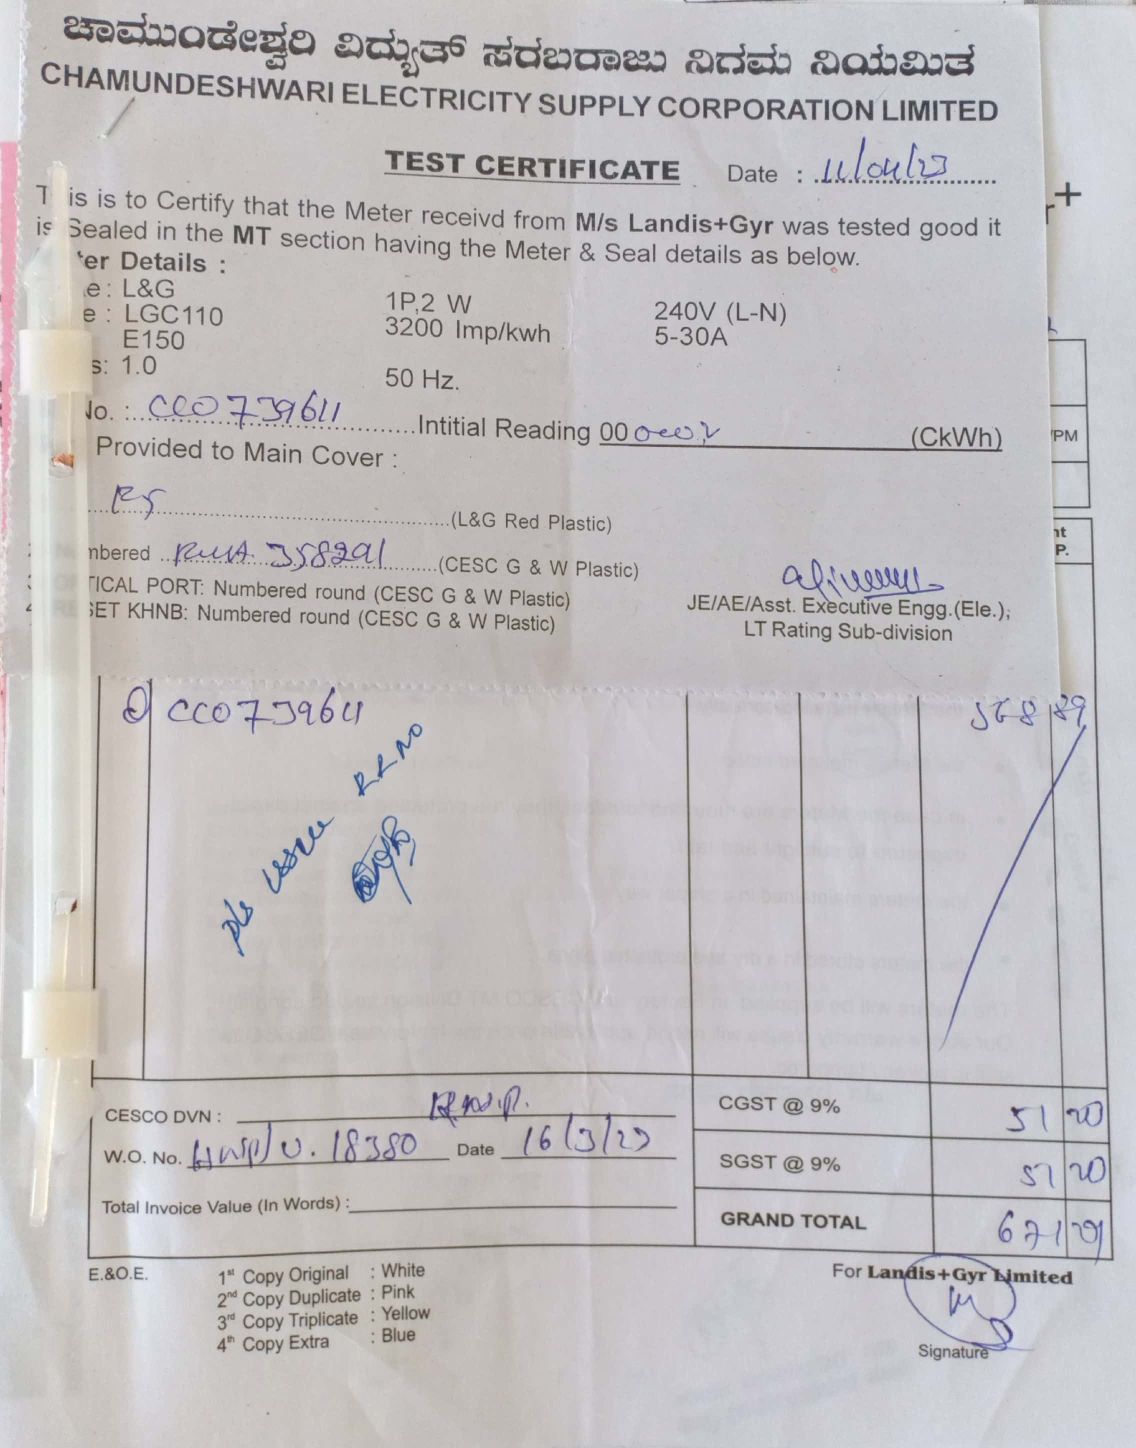 ಚಾಮುಂಡೇಶ್ವರಿ ವಿದ್ಯುತ್ ಸರಬರಾಜು ನಿಗಮ ನಿಯಮಿತ
CHAMUNDESHWARI ELECTRICITY SUPPLY CORPORATION LIMITED
TEST CERTIFICATE Date : 11/04/23
is is to Certify that the Meter receivd from M/s Landis+Gyr was tested good it
is Sealed in the MT section having the Meter & Seal details as below.
ter Details :
e : L&G 1P,2 W 240V (L-N)
e : LGC110 3200 Imp/kwh 5-30A
E150
s: 1.0 50 Hz.
No. : CC0739611 Intitial Reading 00 (CkWh)
Provided to Main Cover :
(L&G Red Plastic)
mbered 358291 (CESC G & W Plastic)
TICAL PORT: Numbered round (CESC G & W Plastic)
SET KHNB: Numbered round (CESC G & W Plastic)
JE/AE/Asst. Executive Engg.(Ele.),
LT Rating Sub-division
/PM
nt
P.
CC0739611 568 89
RR NO
CESCO DVN :
CGST @ 9% 51 20
W.O. No. 18380 Date 16/3/23
SGST @ 9% 51 20
Total Invoice Value (In Words) :
GRAND TOTAL 671 29
E.&O.E.
1st Copy Original : White
2nd Copy Duplicate : Pink
3rd Copy Triplicate : Yellow
4th Copy Extra : Blue
For Landis+Gyr Limited
Signature